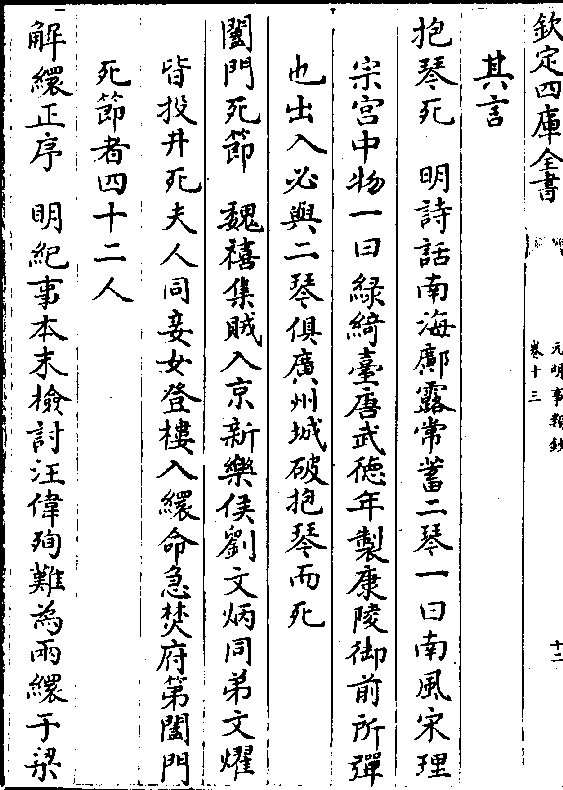 欽定四庫全書
元明事類鈔
卷十三
十二
其言
抱琴死　明詩話南海鄺露常蓄二琴一曰南風宋理
宗宮中物一曰綠綺臺唐武德年製康陵御前所彈
也出入必與二琴俱廣州城破抱琴而死
闔門死節　魏禧集賊入京新樂侯劉文炳同弟文燿
皆投井死夫人同妾女登樓入繯命急焚府第闔門
死節者四十二人
解繯正序　明紀事本末檢討汪偉殉難為兩繯于梁